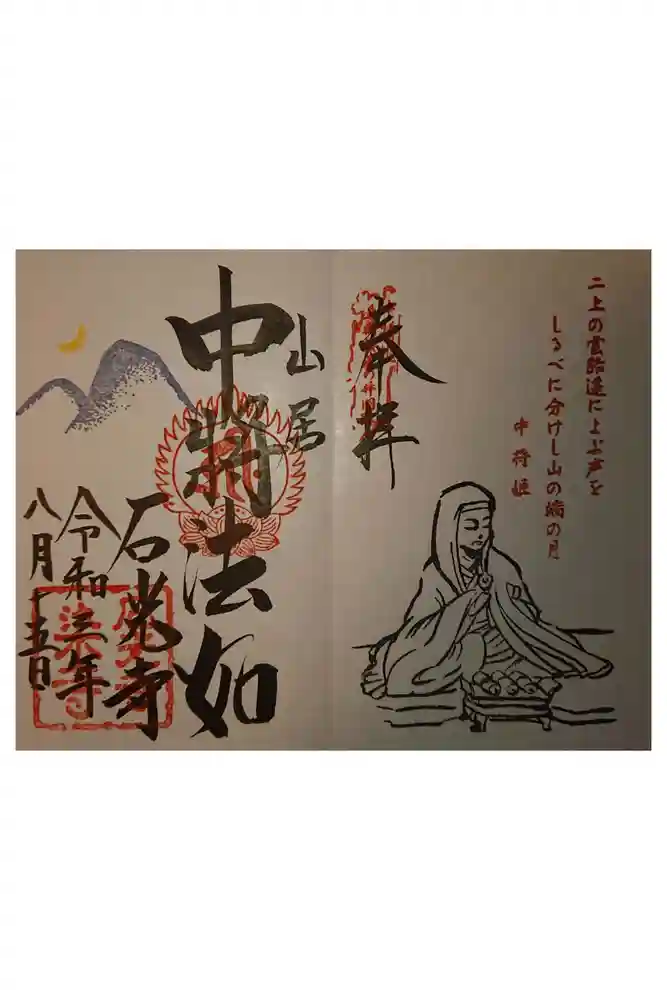 二上の雲路遥によぶ声を
しるべに分けし山の端の月
中将姫
奉拝
山居
中将法如
石光寺
令和三年
八月十五日